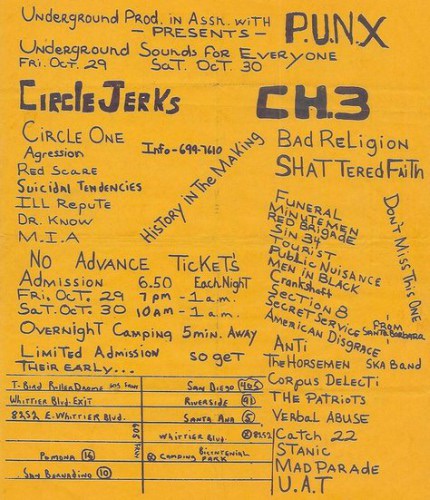 Underground Prod. in Assn. with P.U.N.X
— PRESENTS —
Underground Sounds for Everyone
Fri. Oct. 29 Sat. Oct. 30
Circle Jerks
Circle One
Agression
Red Scare
Suicidal Tendencies
Ill Repute
Dr. Know
M.I.A
Info-699-7610
History in The Making
CH.3
Bad Religion
Shattered Faith
Funeral
Minutemen
Red Brigade
Sin 34
Tourist
Public Nuisance
Men in Black
Crankshaft
Section 8
Secret Service from Santa Barbara
American Disgrace
Anti
The Horsemen Ska Band
Corpus Delecti
The Patriots
Verbal Abuse
Catch 22
Stanic
Mad Parade
U.A.T
Don't Miss This One
No Advance Tickets
Admission 6.50 Each Night
Fri. Oct. 29 7pm - 1a.m.
Sat. Oct. 30 10am - 1a.m.
Overnight Camping 5min. Away
Limited Admission so get
Their early...
T-Bird RollerDrome
Whittier Blvd. Exit
8252 E. Whittier Blvd.
Pomona 16
San Bernadino 10
605 Frwy
San Diego 405
Riverside 91
Santa Ana 5
Whittier Blvd. 8252
Camping Bicentenial Park